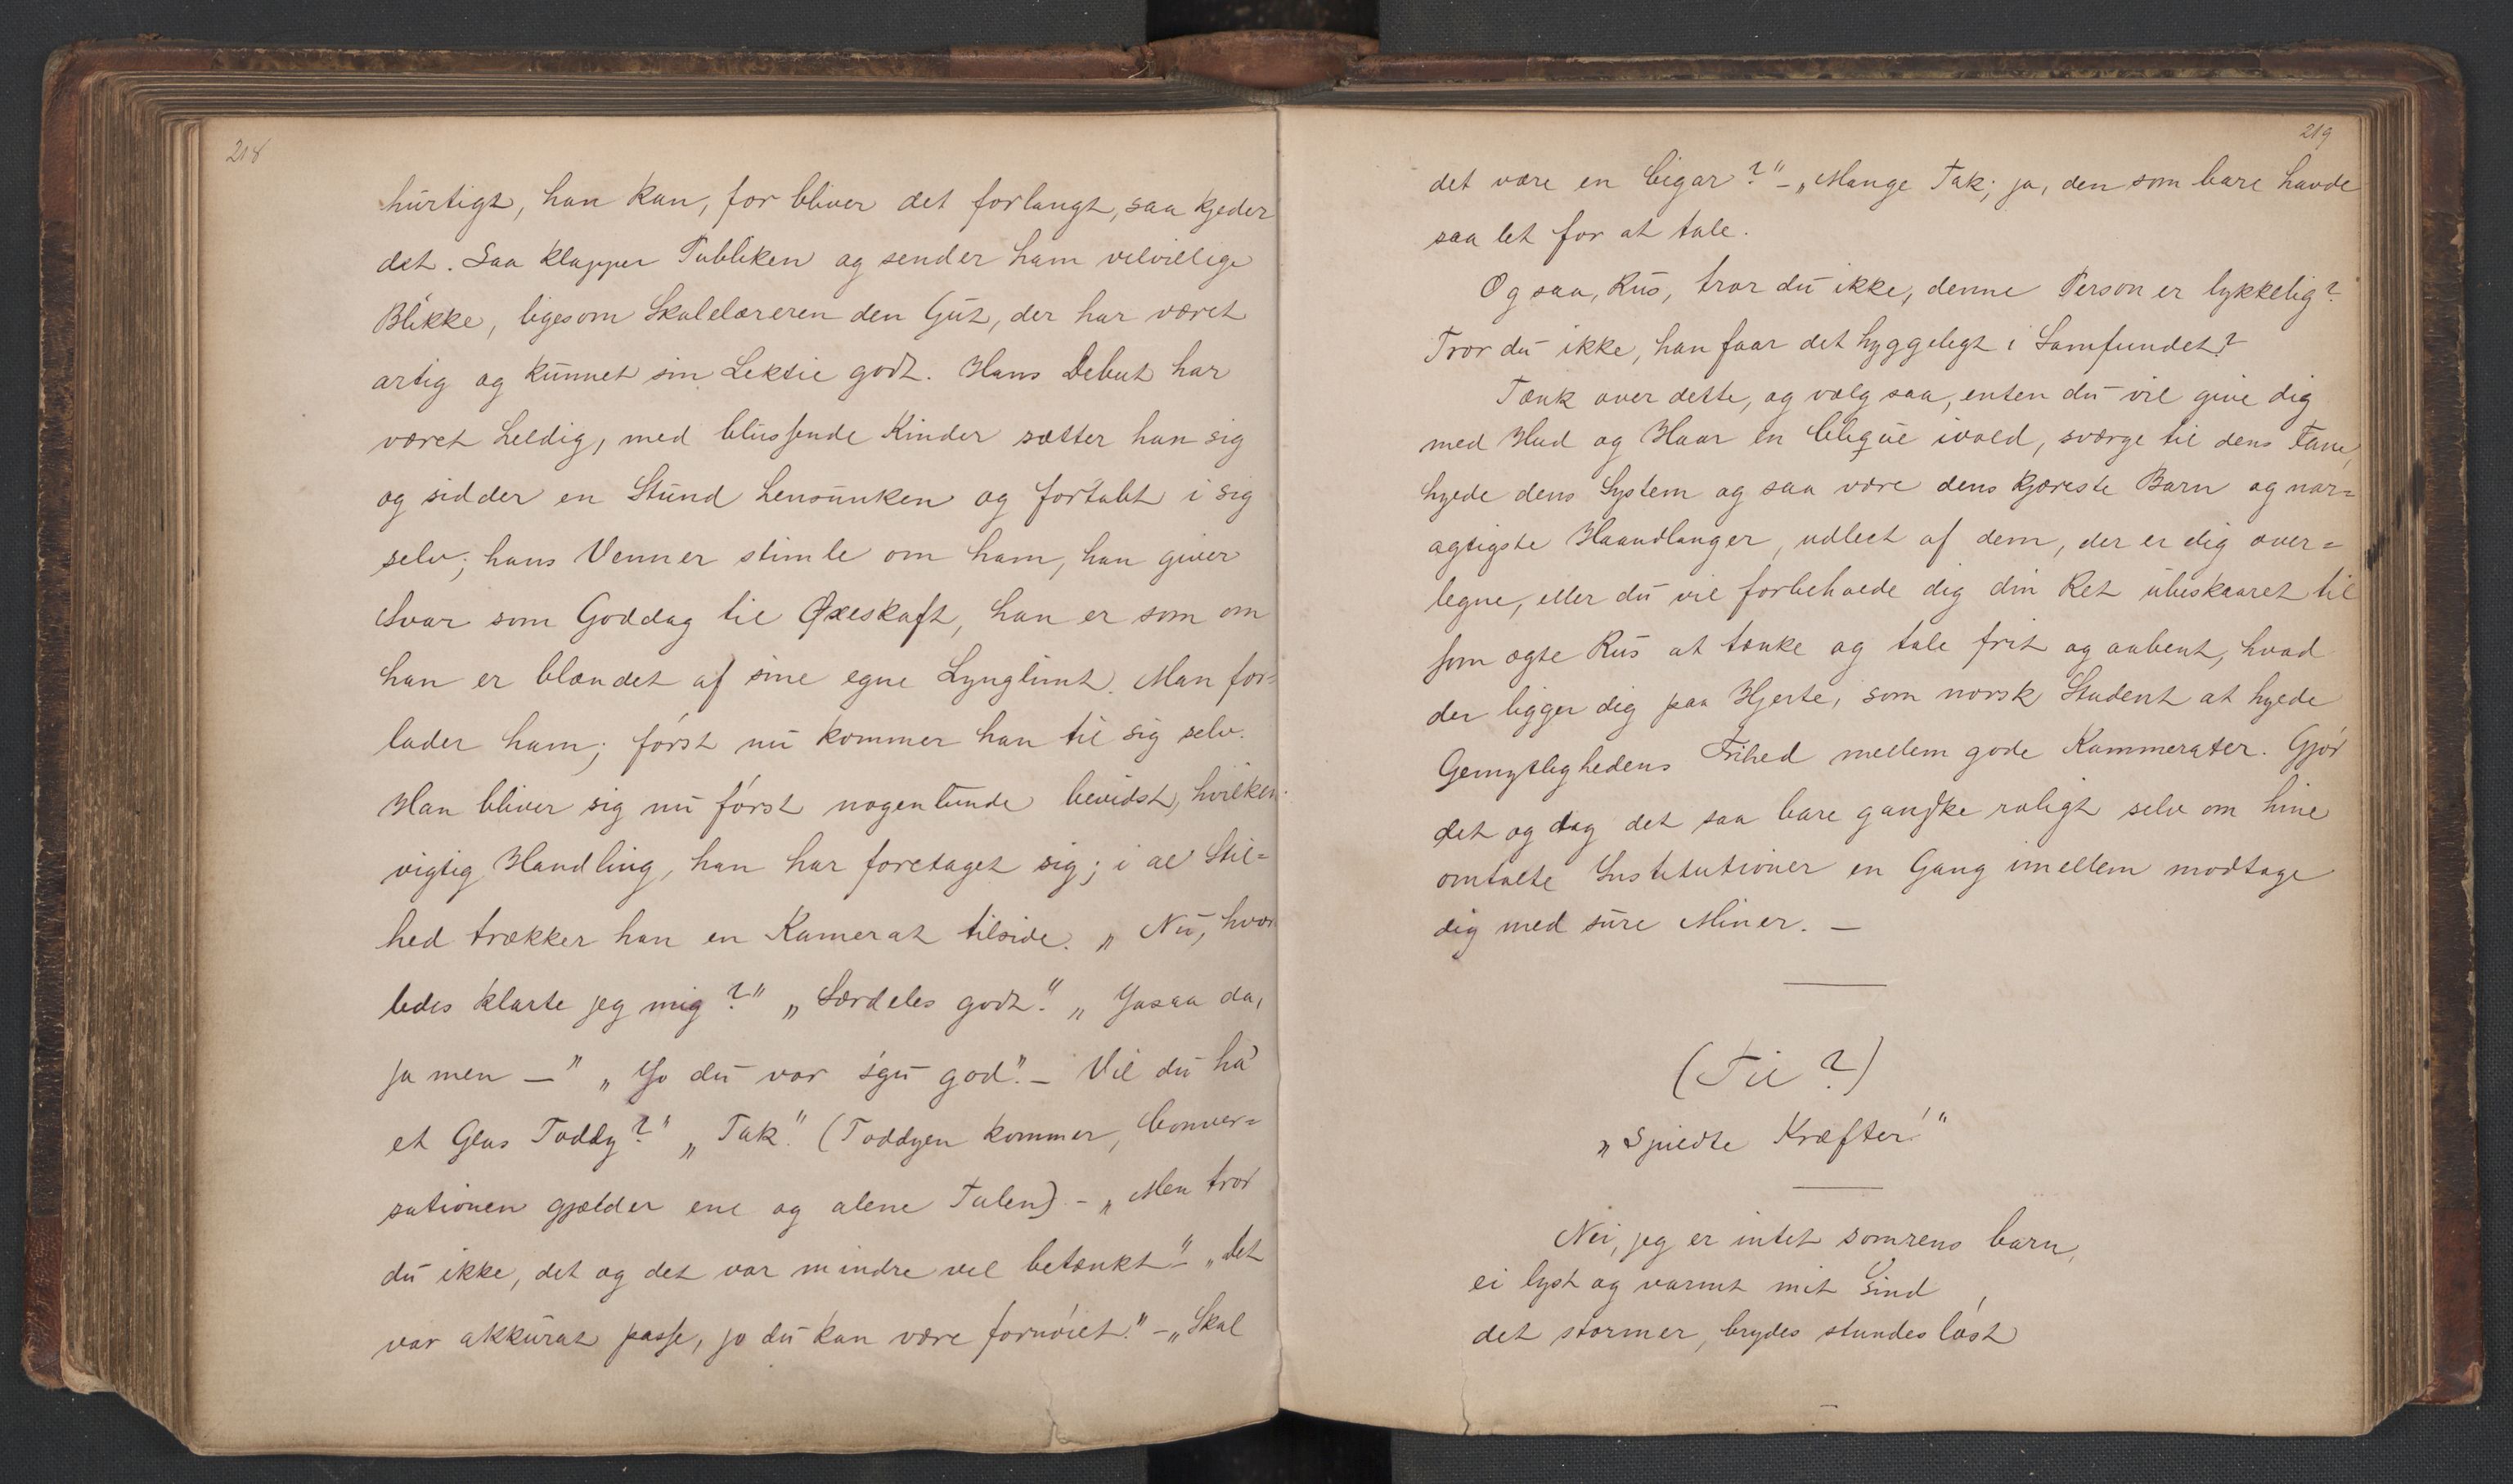 218
hurtigt, han kan, for bliver det forlangt, saa kjeder
det. Saa klapper Publiken og sender ham velvillige
Blikke, ligesom Skolelæreren den Gut, der har været
artig og kunnet sin Lektie godt. Hans Debut har
været heldig, med blussende Kinder sætter han sig
og sidder en Stund hensunken og fortabt i sig
selv; hans Venner stimle om ham, han giver
Svar som Goddag til Øxeskaft, han er som om
han er blændet af sine egne Lynglimt. Man for=
lader ham; først nu kommer han til sig selv.
Han bliver sig nu først nogenlunde bevidst, hvilken
vigtig Handling, han har foretaget sig; i al Stil=
hed trækker han en Kamerat tilside. „Nu, hvor
ledes klarte jeg mig?" „Særdeles godt." „Jasaa da,
ja men —" „Jo du var s'gu god". — Vil du ha'
et Glas Toddy?" „Tak." (Toddyen kommer, Conver=
sationen gjælder ene og alene Talen) — „Men tror
du ikke, det og det var mindre vel betænkt" — „det
var akkurat passe, jo du kan være fornøiet." — „Skal
219
det være en Cigar?" — „Mange Tak; ja, den som bare havde
saa let for at tale.
Og saa, Rus, tror du ikke, denne Person er lykkelig?
Tror du ikke, han faar det hyggeligt i Samfundet?
Tænk over dette, og vælg saa, enten du vil give dig
med Hud og Haar en Clique ivold, sværge til dens Fane,
hylde dens System og saa være dens kjæreste Barn og nar=
agtigste Haandlanger, udleet af dem, der er dig over=
legne, eller du vil forbeholde dig din Ret ubeskaaret til
som ægte Rus at tænke og tale frit og aabent, hvad
der ligger dig paa Hjerte, som norsk Student at hylde
Gemytlighedens Frihed mellem gode Kammerater. Gjør
det og tag det saa bare ganske roligt selv om hine
omtalte Institutioner en Gang imellem modtage
dig med sure Miner. —
(Til ?)
„Spildte Kræfter!"
Nei, jeg er intet somrens barn,
ei lyst og varmt mit Sind,
det stormer, brydes stundesløst